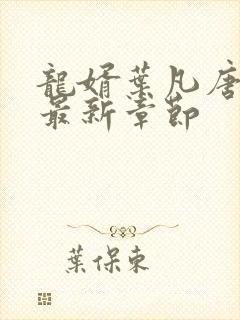 龍婿葉凡唐
最新章節
葉保東